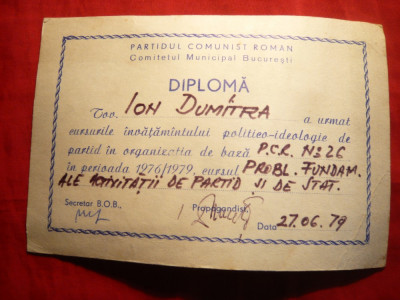 PARTIDUL COMUNIST ROMAN
Comitetul Municipal București
DIPLOMĂ
Tov. ION DUMITRA a urmat
cursurile învățămîntului politico-ideologic de
partid în organizația de bază P.C.R. Nº 26
în perioada 1976/1979, cursul PROBL. FUNDAM.
ALE ACTIVITĂȚII DE PARTID SI DE STAT.
Secretar B.O.B., Propagandist,
Data 27.06.79